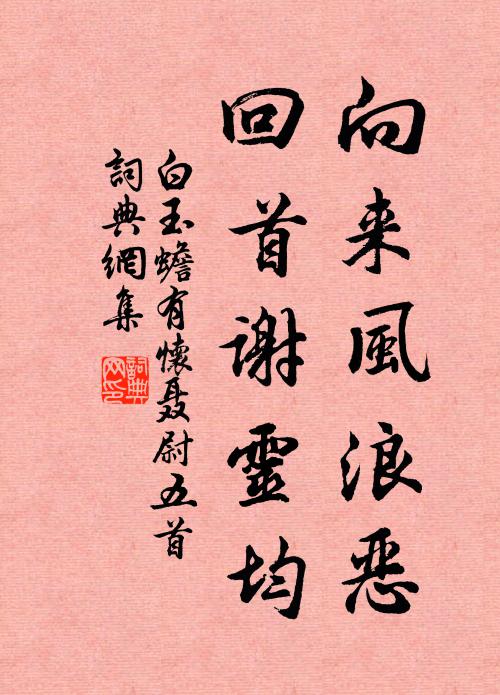 向来風浪恶
回首謝靈均
白玉蟾有懷聂尉五首
詞典網集
詞典网印